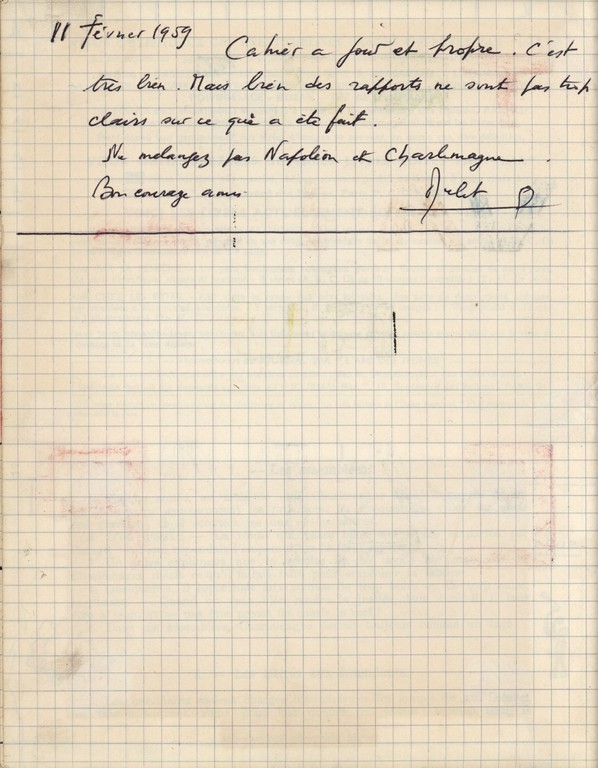 11 Février 1959
Cahier a jour et propre. C'est
très bien. Mais bien des rapports ne sont pas trop
clairs sur ce qui a été fait.
Ne mélangez pas Napoléon et Charlemagne.
Bon courage amis